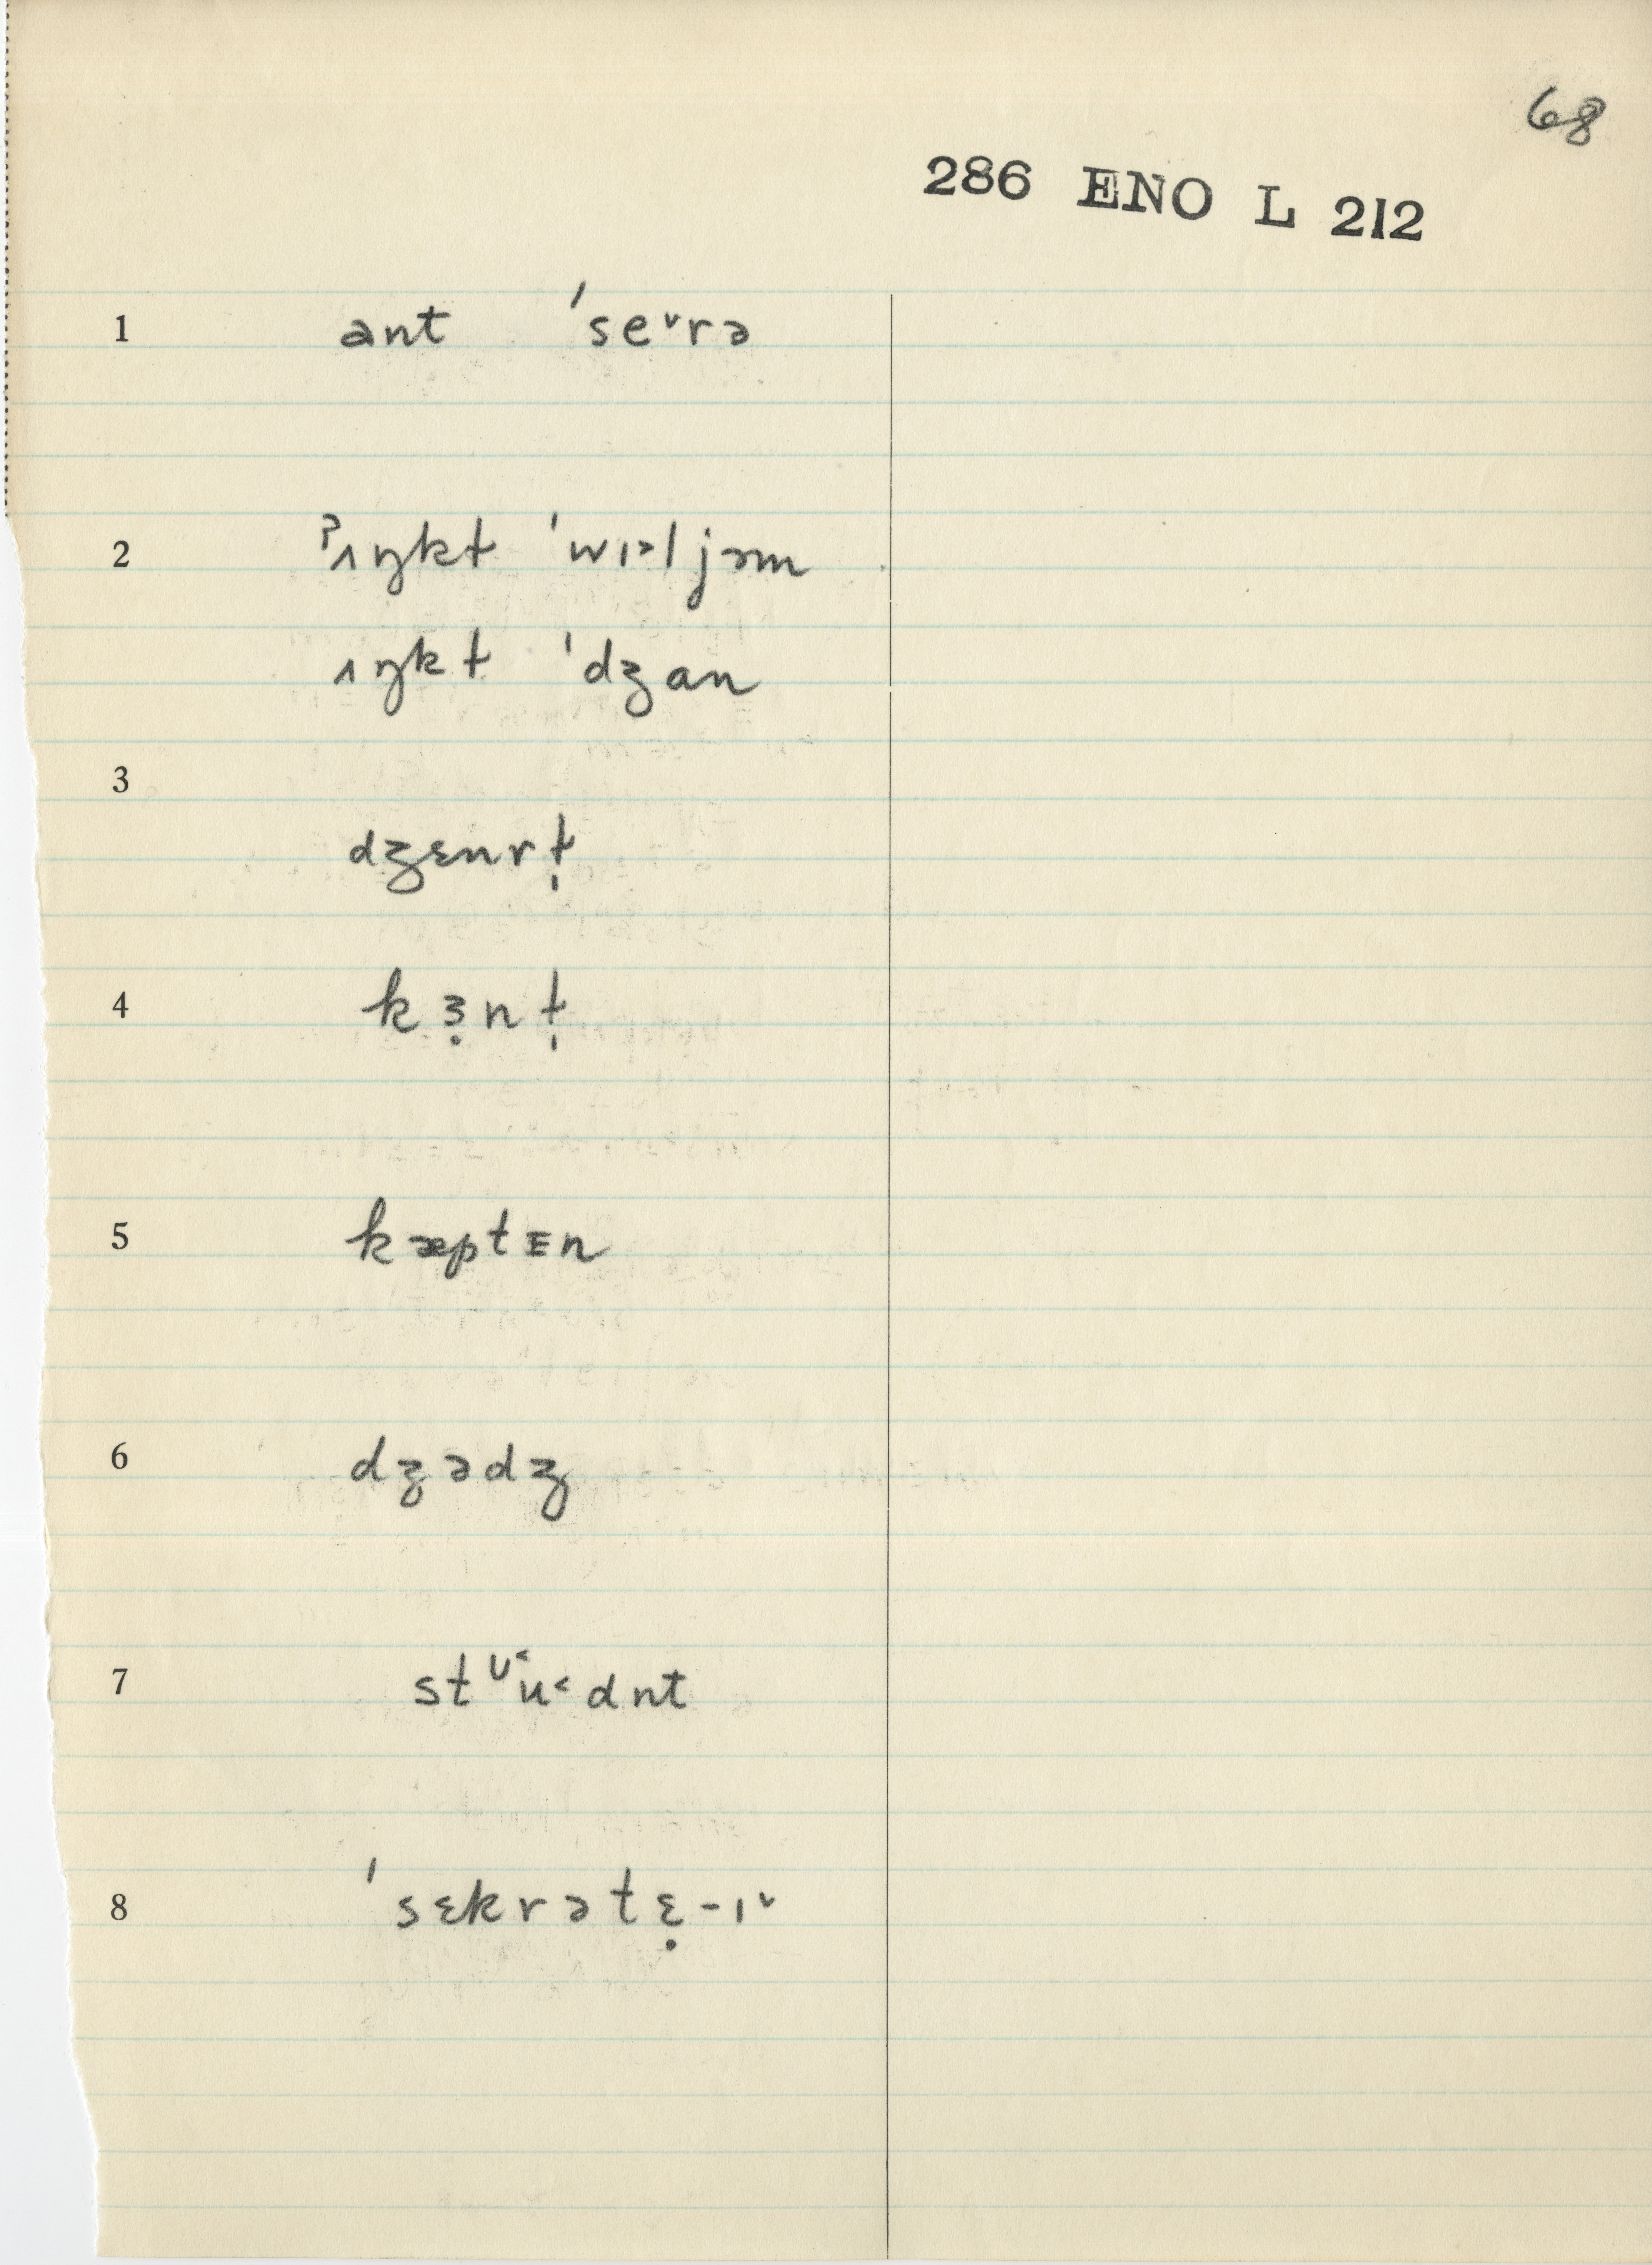 68
286 ENO L 212
1 ant ˈse˅rə
2 ˀʌŋkɫ ˈwɪᵊljəm
ʌŋkɫ ˈdʒan
3
dʒɛnrɫ̩
4 kɜ̣nɫ̩
5 kæptᴇn
6 dʒədʒ
7 stᶷ˂u˂dnt
8 ˈsɛkrətɛ̣-ɪ˅